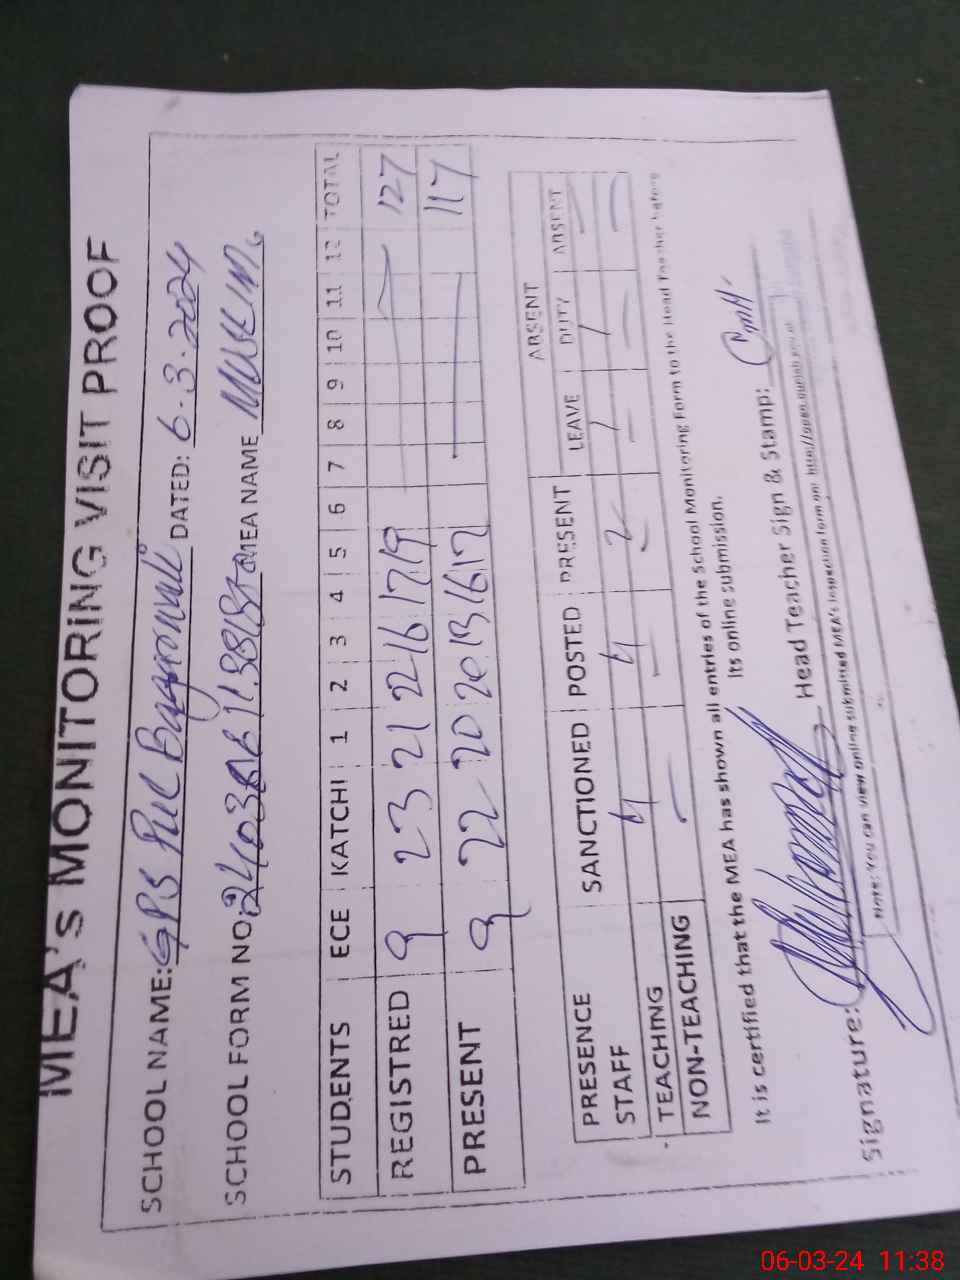 MEA's MONITORING VISIT PROOF
SCHOOL NAME: GPS Pul DATED: 6-3-2024
SCHOOL FORM NO: MEA NAME MUSLIM
STUDENTS ECE KATCHI 1 2 3 4 5 6 7 8 9 10 11 12 TOTAL
REGISTRED 9 23 21 21 16 17 19 127
PRESENT 9 22 20 20 13 16 17 117
PRESENCE SANCTIONED POSTED PRESENT ABSENT
STAFF LEAVE DUTY ABSENT
TEACHING 4 4
NON-TEACHING
It is certified that the MEA has shown all entries of the School Monitoring Form to the Head Teacher before
Its online submission.
Signature: Head Teacher Sign & Stamp:
Note: You can view online submitted MEA's inspection form on:
06-03-24 11:38